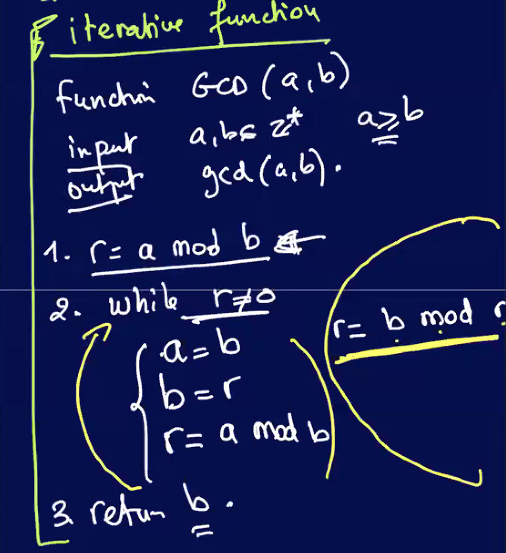 iterative function
function GCD (a,b)
input a,b ∈ Z* a ≥ b
output gcd(a,b).
1. r = a mod b
2. while r ≠ 0
a = b
b = r
r = a mod b
3. return b.
r = b mod r